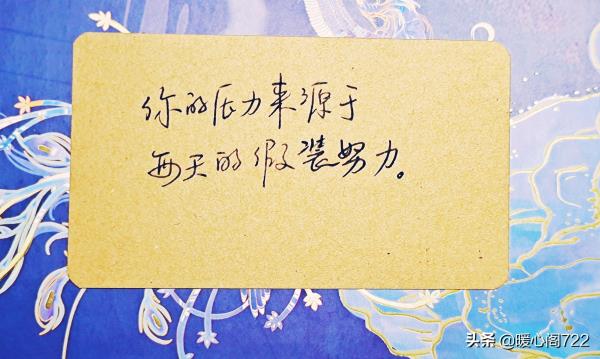 你的压力来源于
每天的假装努力。
头条 @暖心阁722